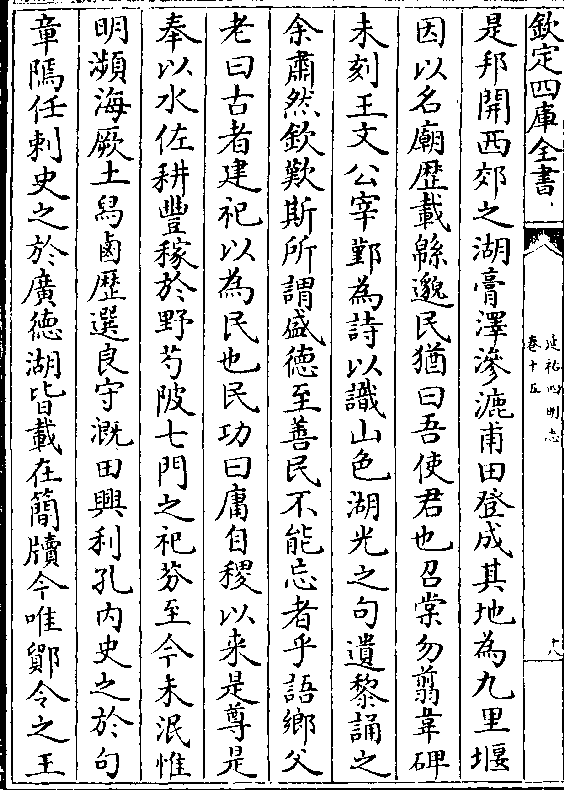 欽定四庫全書
延祐四明志
卷十五
是邦開西郊之湖膏澤滲漉甫田登成其地為九里堰
因以名廟歷載緜邈民猶曰吾使君也召棠勿翦韋碑
未刻王文公宰鄞為詩以識山色湖光之句遺黎誦之
余肅然欽歎斯所謂盛德至善民不能忘者乎語鄉父
老曰古者建祀以為民也民功曰庸自稷以来是尊是
奉以水佐耕豐稼於野芍陂七門之祀芬至今未泯惟
明瀕海厥土舄鹵歷選良守溉田興利孔内史之於句
章隝任刺史之於廣德湖皆載在簡牘今唯鄮令之王